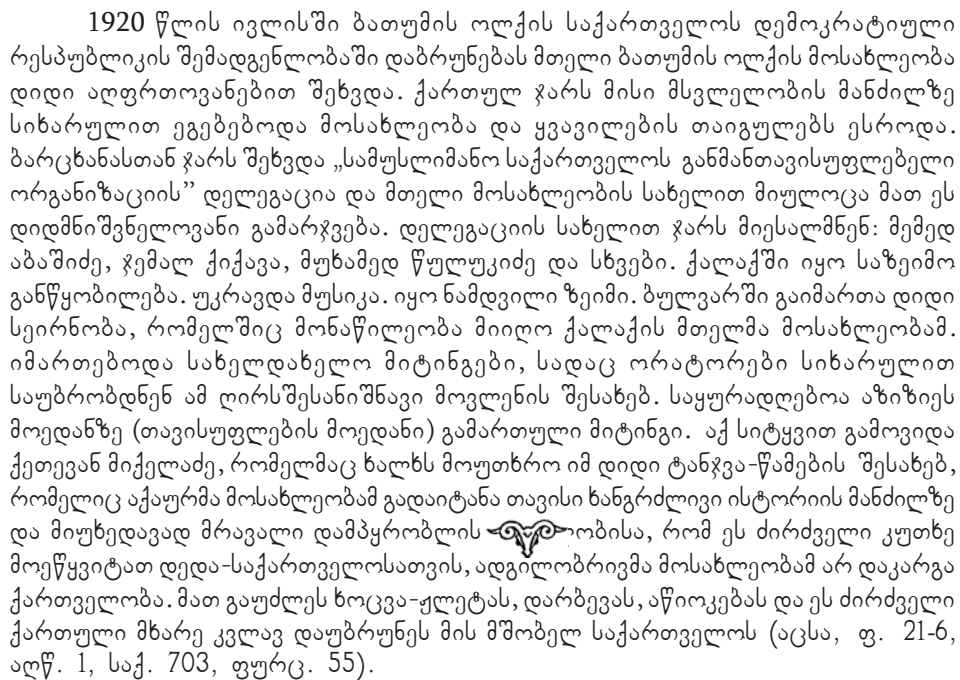 1920 წლის ივლისში ბათუმის ოლქის საქართველოს დემოკრატიული
რესპუბლიკის შემადგენლობაში დაბრუნებას მთელი ბათუმის ოლქის მოსახლეობა
დიდი აღფრთოვანებით შეხვდა. ქართულ ჯარს მისი მსვლელობის მანძილზე
სიხარულით ეგებებოდა მოსახლეობა და ყვავილების თაიგულებს ესროდა.
ბარცხანასთან ჯარს შეხვდა „სამუსლიმანო საქართველოს განმანთავისუფლებელი
ორგანიზაციის’’ დელეგაცია და მთელი მოსახლეობის სახელით მიულოცა მათ ეს
დიდმნიშვნელოვანი გამარჯვება. დელეგაციის სახელით ჯარს მიესალმნენ: მემედ
აბაშიძე, ჯემალ ქიქავა, მუხამედ წულუკიძე და სხვები. ქალაქში იყო საზეიმო
განწყობილება. უკრავდა მუსიკა. იყო ნამდვილი ზეიმი. ბულვარში გაიმართა დიდი
სეირნობა, რომელშიც მონაწილეობა მიიღო ქალაქის მთელმა მოსახლეობამ.
იმართებოდა სახელდახელო მიტინგები, სადაც ორატორები სიხარულით
საუბრობდნენ ამ ღირსშესანიშნავი მოვლენის შესახებ. საყურადღებოა აზიზიეს
მოედანზე (თავისუფლების მოედანი) გამართული მიტინგი. აქ სიტყვით გამოვიდა
ქეთევან მიქელაძე, რომელმაც ხალხს მოუთხრო იმ დიდი ტანჯვა-წამების შესახებ,
რომელიც აქაურმა მოსახლეობამ გადაიტანა თავისი ხანგრძლივი ისტორიის მანძილზე
და მიუხედავად მრავალი დამპყრობლის ობისა, რომ ეს ძირძველი კუთხე
მოეწყვიტათ დედა-საქართველოსათვის, ადგილობრივმა მოსახლეობამ არ დაკარგა
ქართველობა. მათ გაუძლეს ხოცვა-ჟლეტას, დარბევას, აწიოკებას და ეს ძირძველი
ქართული მხარე კვლავ დაუბრუნეს მის მშობელ საქართველოს (აცსა, ფ. 21-6,
აღწ. 1, საქ. 703, ფურც. 55).